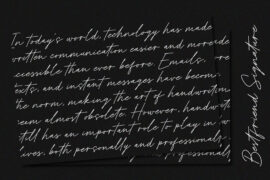 In today's world, technology has made
written communication easier and more
accessible than ever before. Emails,
texts, and instant messages have become
the norm, making the art of handwriting
seem almost obsolete. However, handwriting
still has an important role to play in
lives, both personally and professionally
professionally
Bestfriend Signature